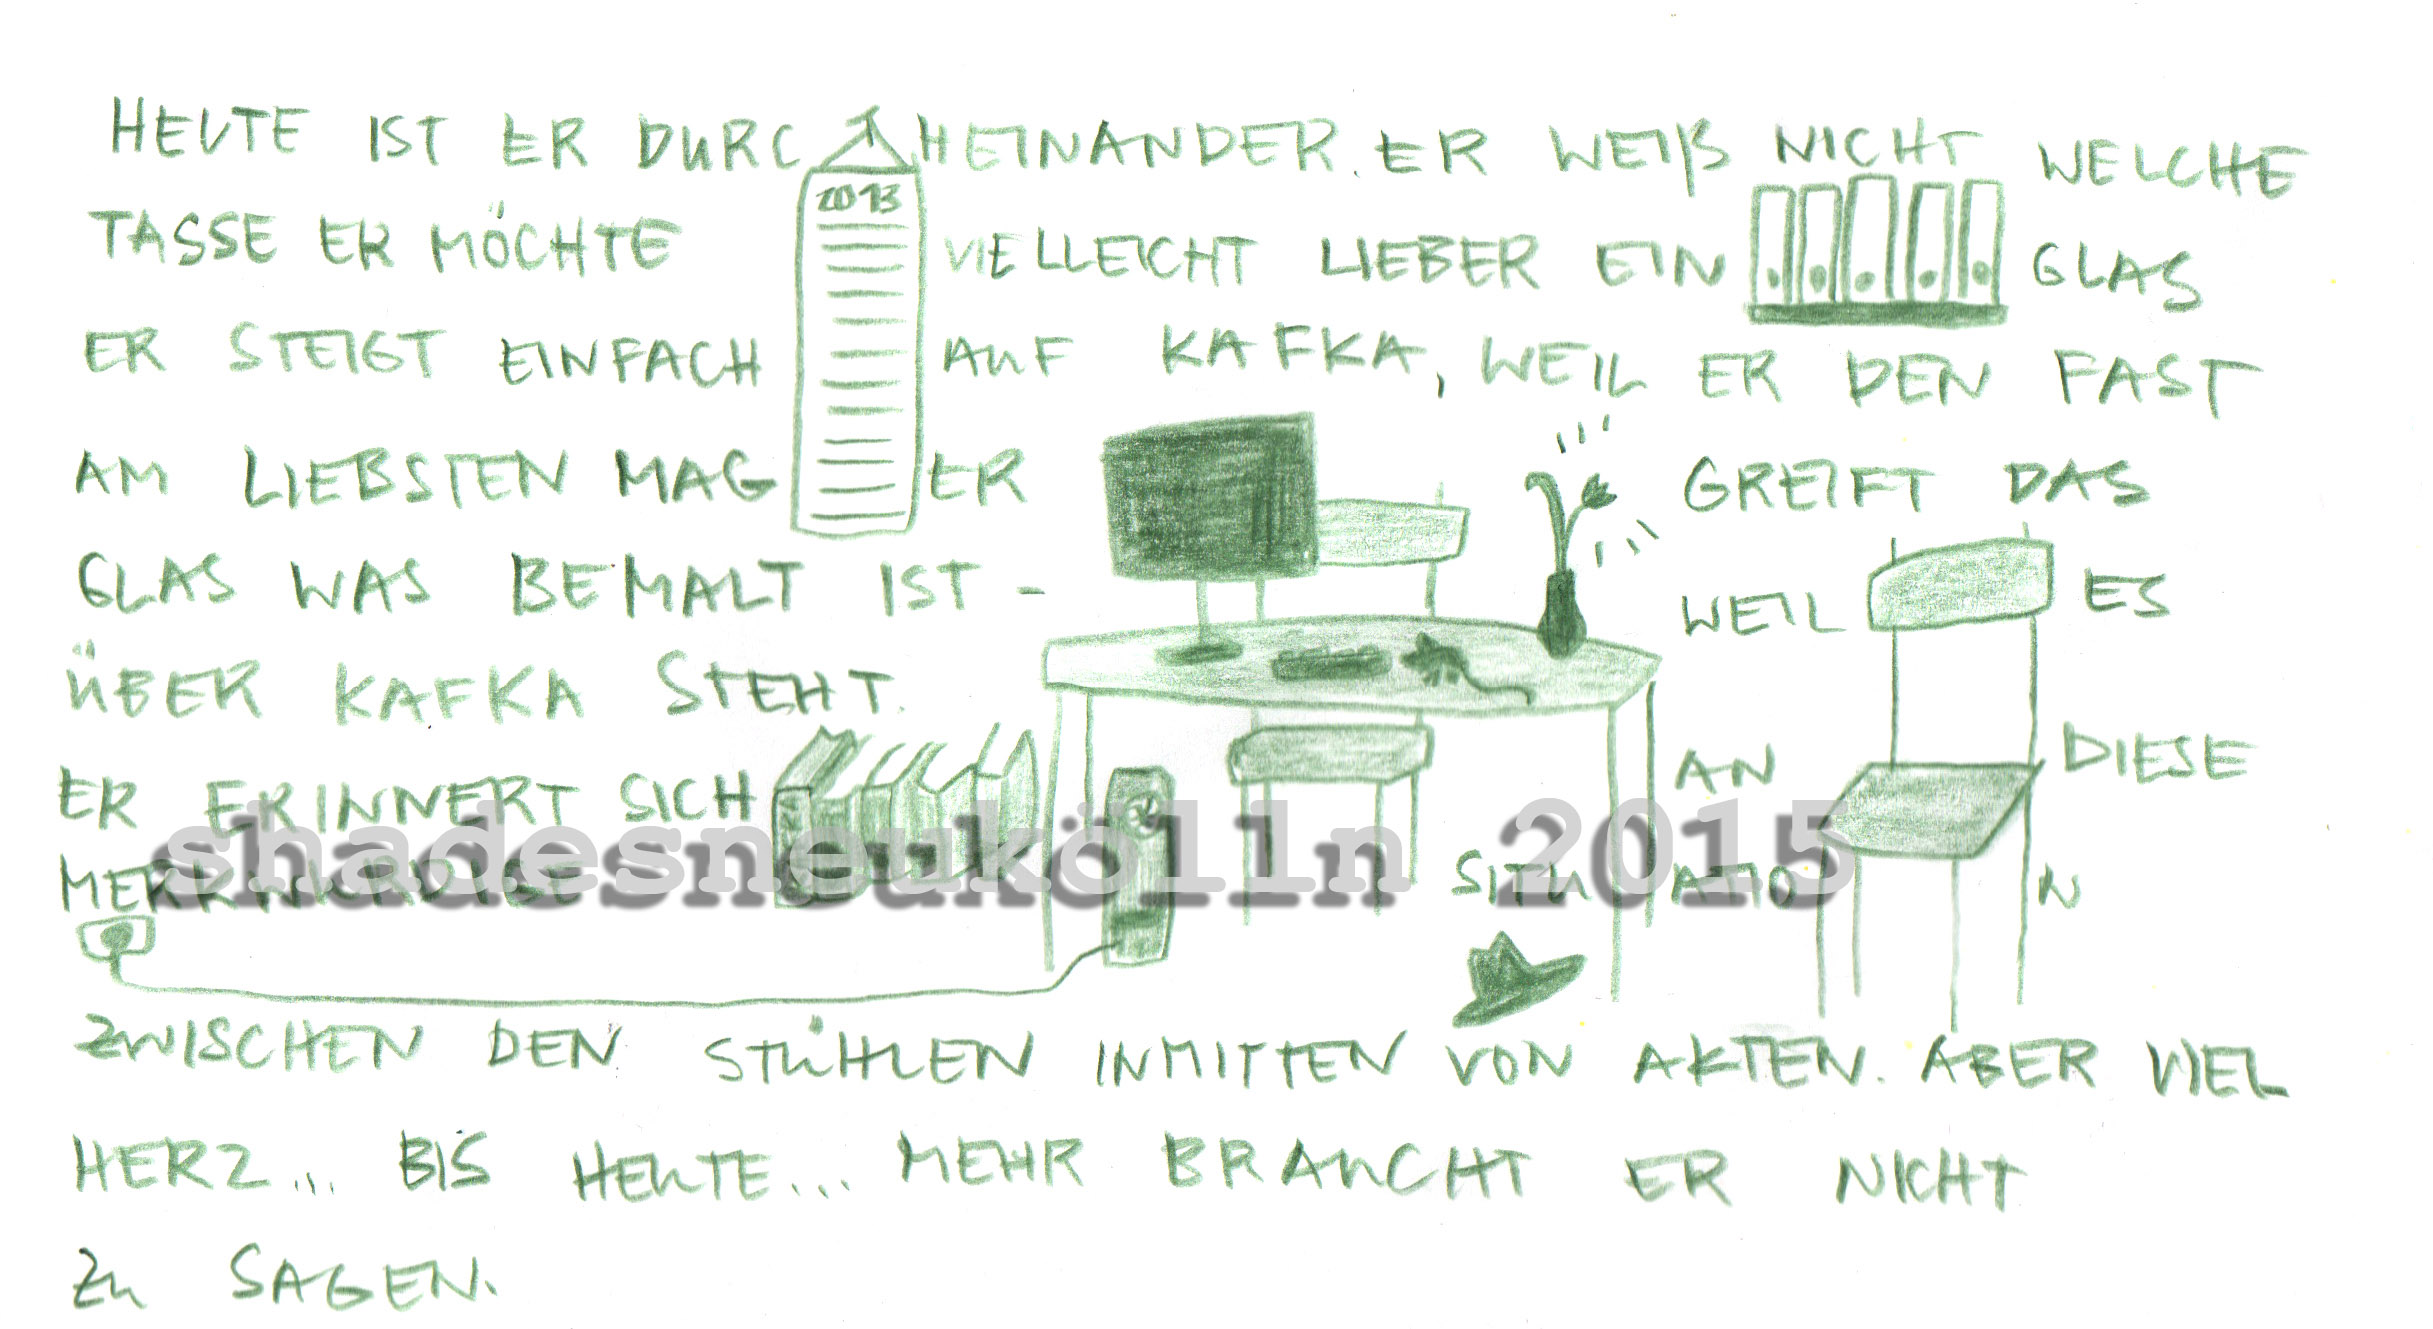 HEUTE IST ER DURCHEINANDER. ER WEIß NICHT WELCHE
2013
TASSE ER MÖCHTE VIELLEICHT LIEBER EIN GLAS
ER STEIGT EINFACH AUF KAFKA, WEIL ER DEN FAST
AM LIEBSTEN MAG ER GREIFT DAS
GLAS WAS BEMALT IST - WEIL ES
ÜBER KAFKA STEHT.
ER ERINNERT SICH AN DIESE
shadesneukölln 2015
MERKWÜRDIGE SITUATION
ZWISCHEN DEN STÜHLEN INMITTEN VON AKTEN. ABER VIEL
HERZ... BIS HEUTE... MEHR BRAUCHT ER NICHT
ZU SAGEN.